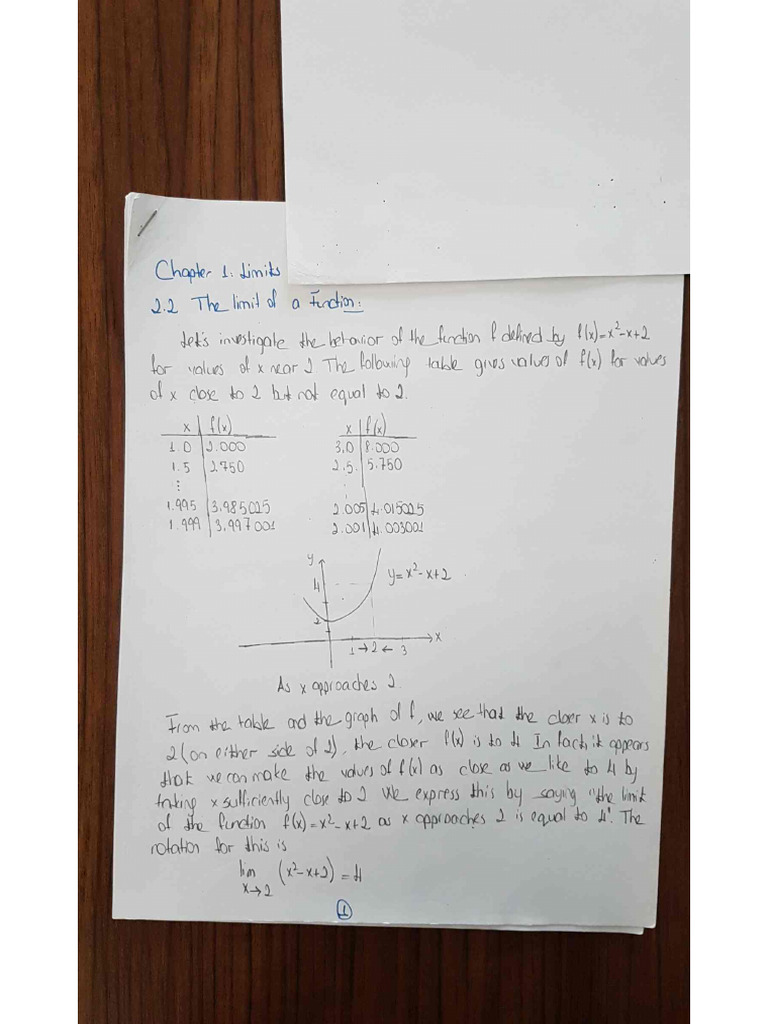 Chapter 1: Limits
2.2 The limit of a Function:
Let's investigate the behavior of the function f defined by f(x)=x²-x+2
for values of x near 2 The following table gives values of f(x) for values
of x close to 2 but not equal to 2.
x f(x)
1.0 2.000
1.5 2.750
⋮
1.995 3.985025
1.999 3.997001
x f(x)
3.0 8.000
2.5. 5.750
⋮
2.005 4.015025
2.001 4.003001
y
4
y=x²-x+2
2
x
1→2← 3
As x approaches 2.
From the table and the graph of f, we see that the closer x is to
2 (on either side of 2), the closer f(x) is to 4 In fact, it appears
that we can make the values of f(x) as close as we like to 4 by
taking x sufficiently close to 2 We express this by saying "the limit
of the function f(x)=x²-x+2 as x approaches 2 is equal to 4". The
notation for this is
lim (x²-x+2)=4
x→2
1